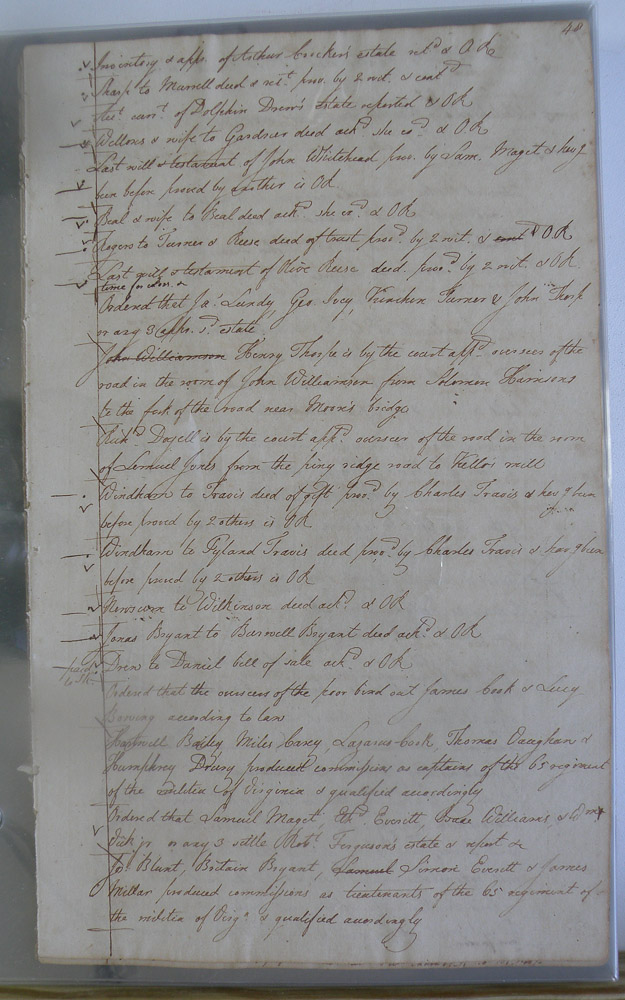 48
Inventory & appr. of Arthur Crocker's estate retd. & O.R
Sharp to Murrell deed & rect. prov. by 2 wit. & contd
Acct. curt. of Dolphin Drew's estate reported & OR
Wellons & wife to Gardner deed ackd. she exd. & O.R
Last will & testament of John Whitehead prov. by Sam. Maget & havg.
been before proved by another is OR
Beal & wife to Beal deed ackd. she exd. & OR
Rogers to Turner & Reese deed of trust provd. by 2 wit. & contd & OR
Last will & testament of Olive Reese decd. provd. by 2 wit. & OR
time for
Ordered that Ja. Lundy, Geo. Ivey, Kinchen Turner & John Thorp
or any 3 appr. sd. estate
John Williamson Henry Thorpe is by the court appd. overseer of the
road in the room of John Williamson from Solomon Harrisons
to the fork of the road near Moor's bridge
Richd. Doyell is by the court appd. overseer of the road in the room
of Lemuel Jones from the piny ridge road to Kello's mill
Windham to Travis deed of gift provd. by Charles Travis & havg. been
before proved by 2 others is OR
Windham to Pyland Travis deed provd. by Charles Travis & havg. been
before proved by 2 others is OR
Newsom to Wilkinson deed ackd. & OR
Jonas Bryant to Barwell Bryant deed ackd. & OR
Drew to Daniel bill of sale ackd. & OR
Ordered that the overseers of the poor bind out James Cook & Lucy
according to law
Hartwell Bailey, Miles Carey, Lazarus Cook, Thomas Vaughan &
Humphrey Drury produced commissions as captains of the 65 regiment
of the militia of Virginia & qualified accordingly
Ordered that Samuel Maget, Ethd. Everitt, Isaac Williams, & Wm.
Vick jr. or any 3 settle Robt. Ferguson's estate & report &
Jos. Blunt, Britain Bryant, Samuel Simon Everitt & James
Millar produced commissions as lieutenants of the 65 regiment of
the militia of Virga. & qualified accordingly